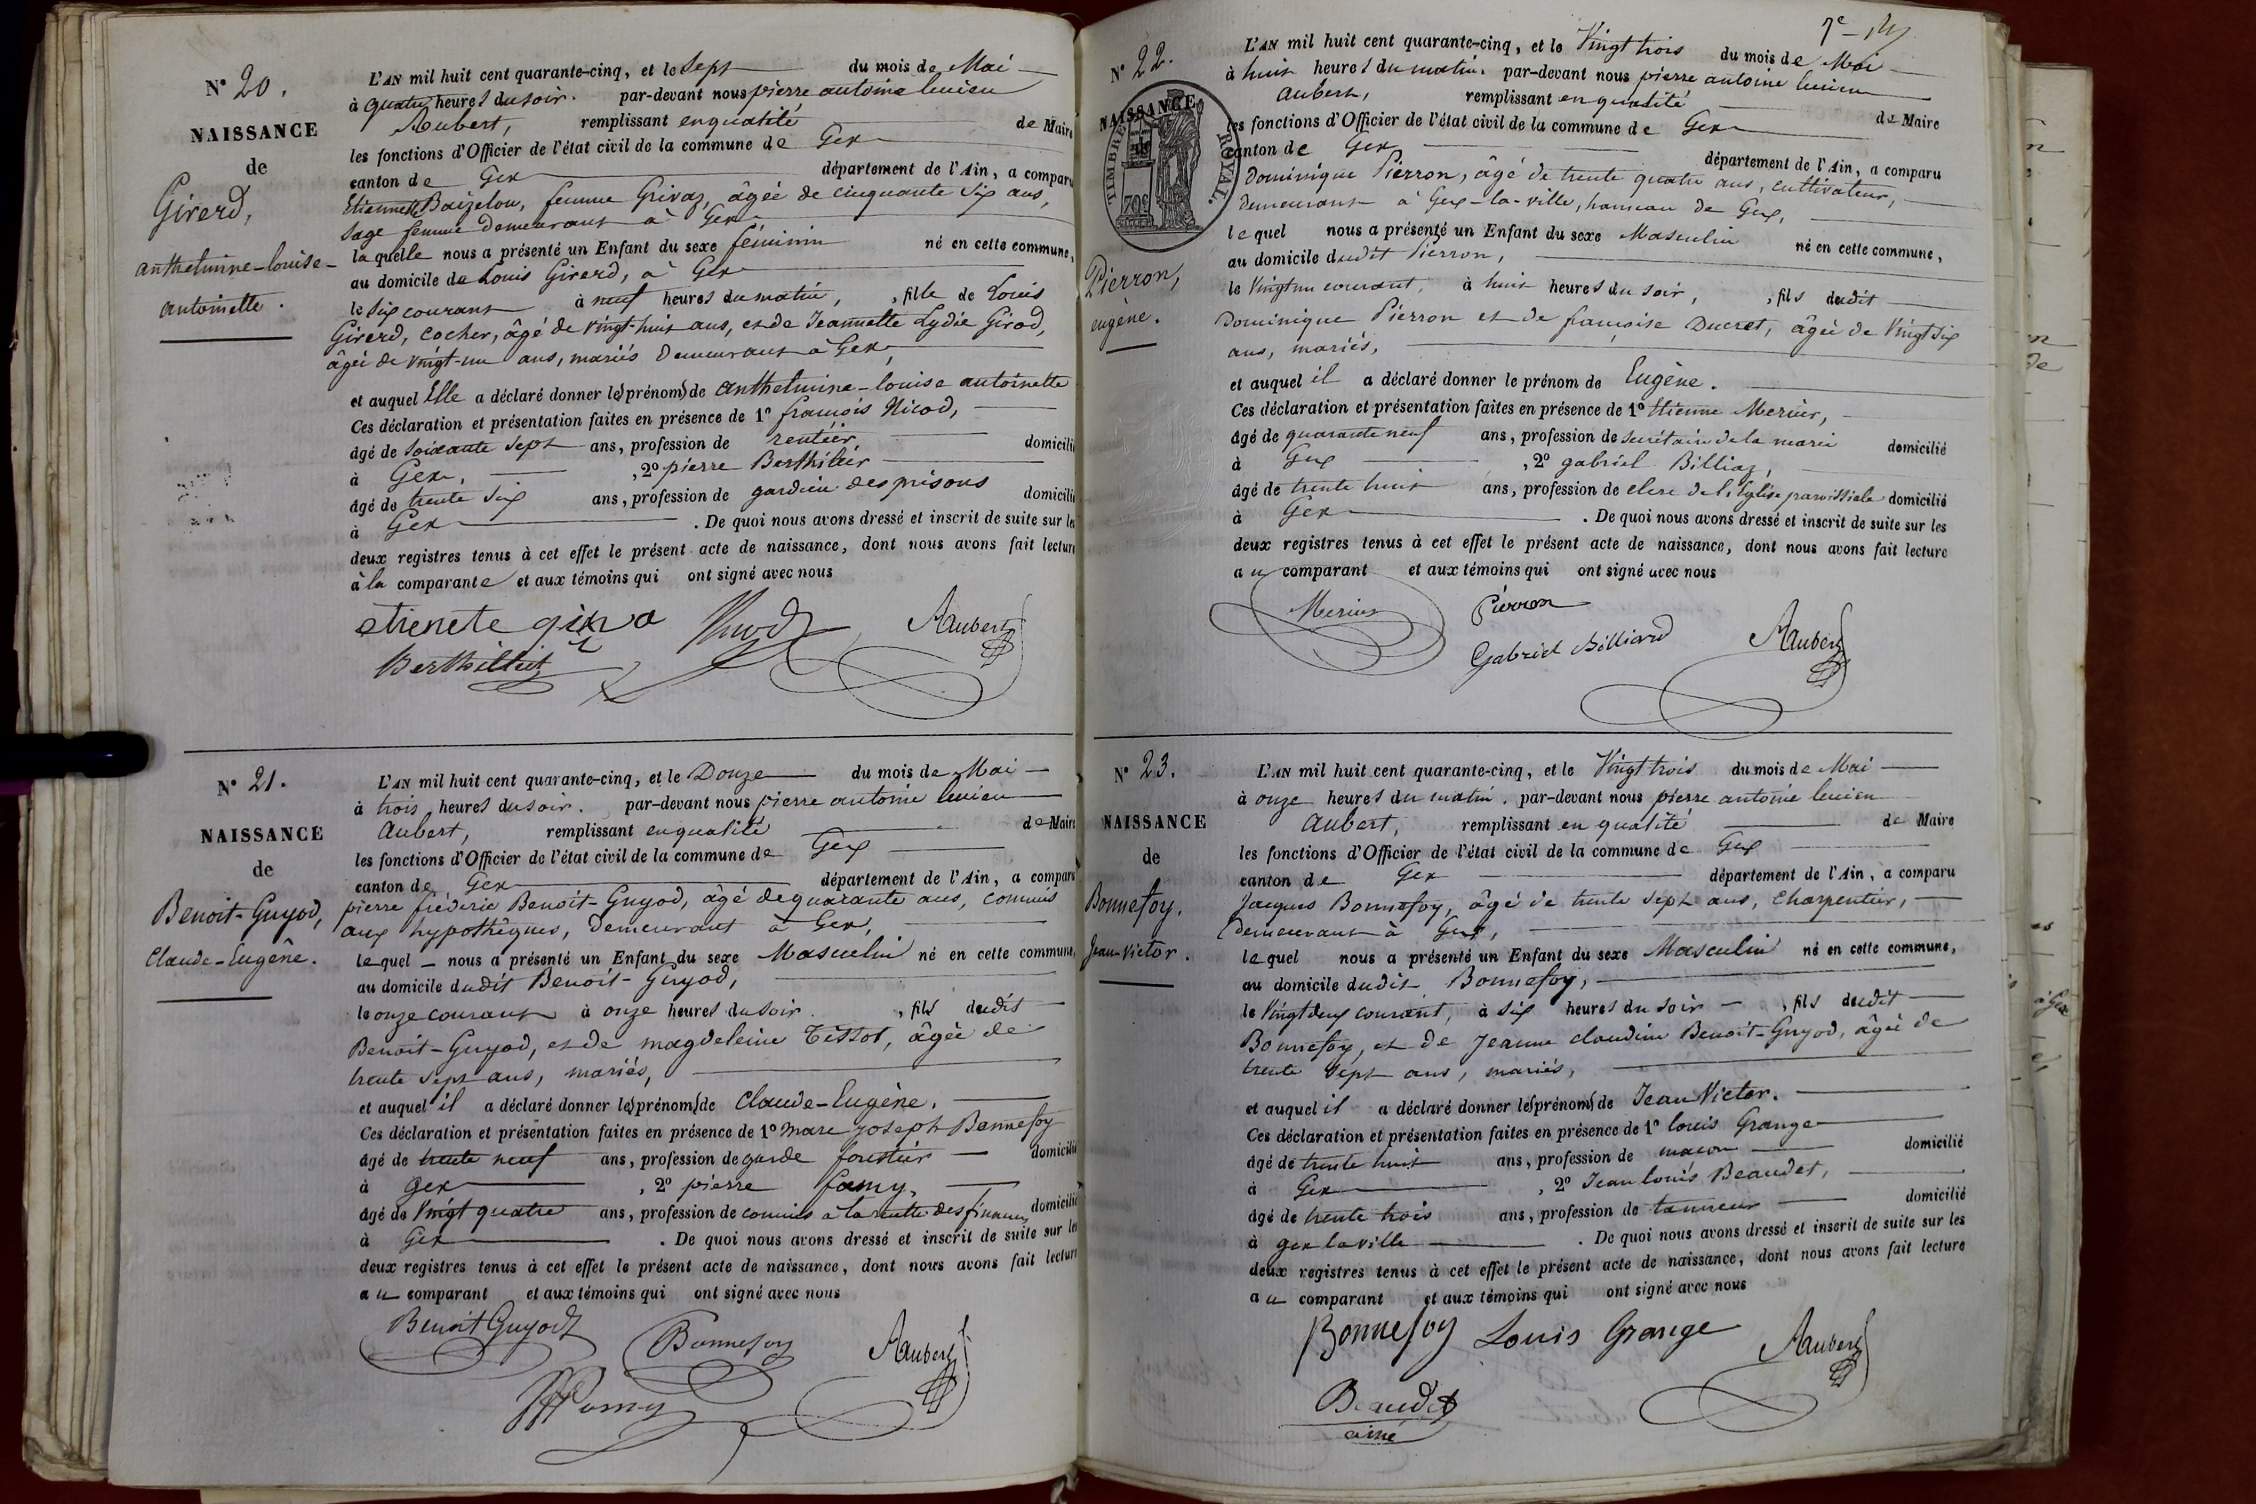 N° 20.
NAISSANCE
de
Girerd,
anthelmine-louise-
antoinette.
L'AN mil huit cent quarante-cinq, et le Sept du mois de Mai
à quatre heures du soir. par-devant nous pierre antoine lucien
Aubert, remplissant en qualité de Maire
les fonctions d'Officier de l'état civil de la commune de Gex
canton de Gex département de l'Ain, a comparu
Etiennette Baizelou, femme Grivaz, âgée de cinquante six ans,
sage femme demeurant à Gex
laquelle nous a présenté un Enfant du sexe féminin né en cette commune,
au domicile de Louis Girerd, à Gex
le six courant à neuf heures du matin, , fille de Louis
Girerd, cocher, âgé de vingt-huit ans, et de Jeannette Lydie Girod,
âgée de vingt-un ans, mariés demeurant à Gex,
et auquel Elle a déclaré donner les prénoms de anthelmine-louise antoinette
Ces déclaration et présentation faites en présence de 1° françois Nicod,
âgé de soixante sept ans, profession de rentier, domicilié
à Gex, , 2° pierre Berthilier
âgé de trente six ans, profession de gardien des prisons domicilié
à Gex . De quoi nous avons dressé et inscrit de suite sur les
deux registres tenus à cet effet le présent acte de naissance, dont nous avons fait lecture
à la comparante et aux témoins qui ont signé avec nous
Nicod Aubert
N° 21.
NAISSANCE
de
Benoit-Guyod,
Claude-Eugêne.
L'AN mil huit cent quarante-cinq, et le Douze du mois de Mai
à trois heures du soir. par-devant nous pierre antoine lucien
Aubert, remplissant en qualité de Maire
les fonctions d'Officier de l'état civil de la commune de Gex
canton de Gex département de l'Ain, a comparu
pierre fréderic Benoit-Guyod, âgé de quarante ans, commis
aux hypothèques, demeurant à Gex,
lequel nous a présenté un Enfant du sexe Masculin né en cette commune,
au domicile dudit Benoit-Guyod,
le onze courant à onze heures du soir , fils dudit
Benoit-Guyod, et de magdeleine Tissot, âgée de
trente sept ans, mariés,
et auquel il a déclaré donner les prénoms de Claude-Eugène.
Ces déclaration et présentation faites en présence de 1° marc joseph Bonnefoy
âgé de trente neuf ans, profession de garde forestier domicilié
à gex , 2° pierre famy,
âgé de Vingt quatre ans, profession de commis à la recette des finances domicilié
à Gex . De quoi nous avons dressé et inscrit de suite sur les
deux registres tenus à cet effet le présent acte de naissance, dont nous avons fait lecture
au comparant et aux témoins qui ont signé avec nous
Benoit Guyod Bonnefoy Aubert
Famy
7e
N° 22.
NAISSANCE
TIMBRE ROYAL
70c
Pierron,
eugène.
L'AN mil huit cent quarante-cinq, et le Vingt trois du mois de Mai
à huit heures du matin. par-devant nous pierre antoine lucien
Aubert, remplissant en qualité de Maire
les fonctions d'Officier de l'état civil de la commune de Gex
canton de Gex département de l'Ain, a comparu
Dominique Pierron, âgé de trente quatre ans, cultivateur,
demeurant à Gex-la-ville, hameau de Gex,
lequel nous a présenté un Enfant du sexe Masculin né en cette commune,
au domicile dudit Pierron,
le Vingt un courant, à huit heures du soir, , fils dudit
Dominique Pierron et de françoise Ducret, âgée de Vingt six
ans, mariés,
et auquel il a déclaré donner le prénom de Eugène.
Ces déclaration et présentation faites en présence de 1° Etienne Mercier,
âgé de quarante neuf ans, profession de secrétaire de la mairie domicilié
à Gex , 2° gabriel Billiaz,
âgé de trente huit ans, profession de clerc de l'Eglise paroissiale domicilié
à Gex . De quoi nous avons dressé et inscrit de suite sur les
deux registres tenus à cet effet le présent acte de naissance, dont nous avons fait lecture
au comparant et aux témoins qui ont signé avec nous
Mercier Pierron
Gabriel Billiard Aubert
N° 23.
NAISSANCE
de
Bonnefoy,
Jean-Victor.
L'AN mil huit cent quarante-cinq, et le Vingt trois du mois de Mai
à onze heures du matin. par-devant nous pierre antoine lucien
Aubert, remplissant en qualité de Maire
les fonctions d'Officier de l'état civil de la commune de Gex
canton de Gex département de l'Ain, a comparu
Jacques Bonnefoy, âgé de trente sept ans, Charpentier,
demeurant à Gex,
lequel nous a présenté un Enfant du sexe Masculin né en cette commune,
au domicile dudit Bonnefoy,
le Vingt deux courant, à six heures du soir , fils dudit
Bonnefoy, et de Jeanne claudine Benoit-Guyod, âgée de
trente sept ans, mariés,
et auquel il a déclaré donner les prénoms de Jean Victor.
Ces déclaration et présentation faites en présence de 1° louis Grange
âgé de trente huit ans, profession de macon domicilié
à Gex , 2° Jean louis Beaudet,
âgé de trente trois ans, profession de tanneur domicilié
à gex la ville . De quoi nous avons dressé et inscrit de suite sur les
deux registres tenus à cet effet le présent acte de naissance, dont nous avons fait lecture
au comparant et aux témoins qui ont signé avec nous
Bonnefoy Louis Grange Aubert
Beaudet
ainé